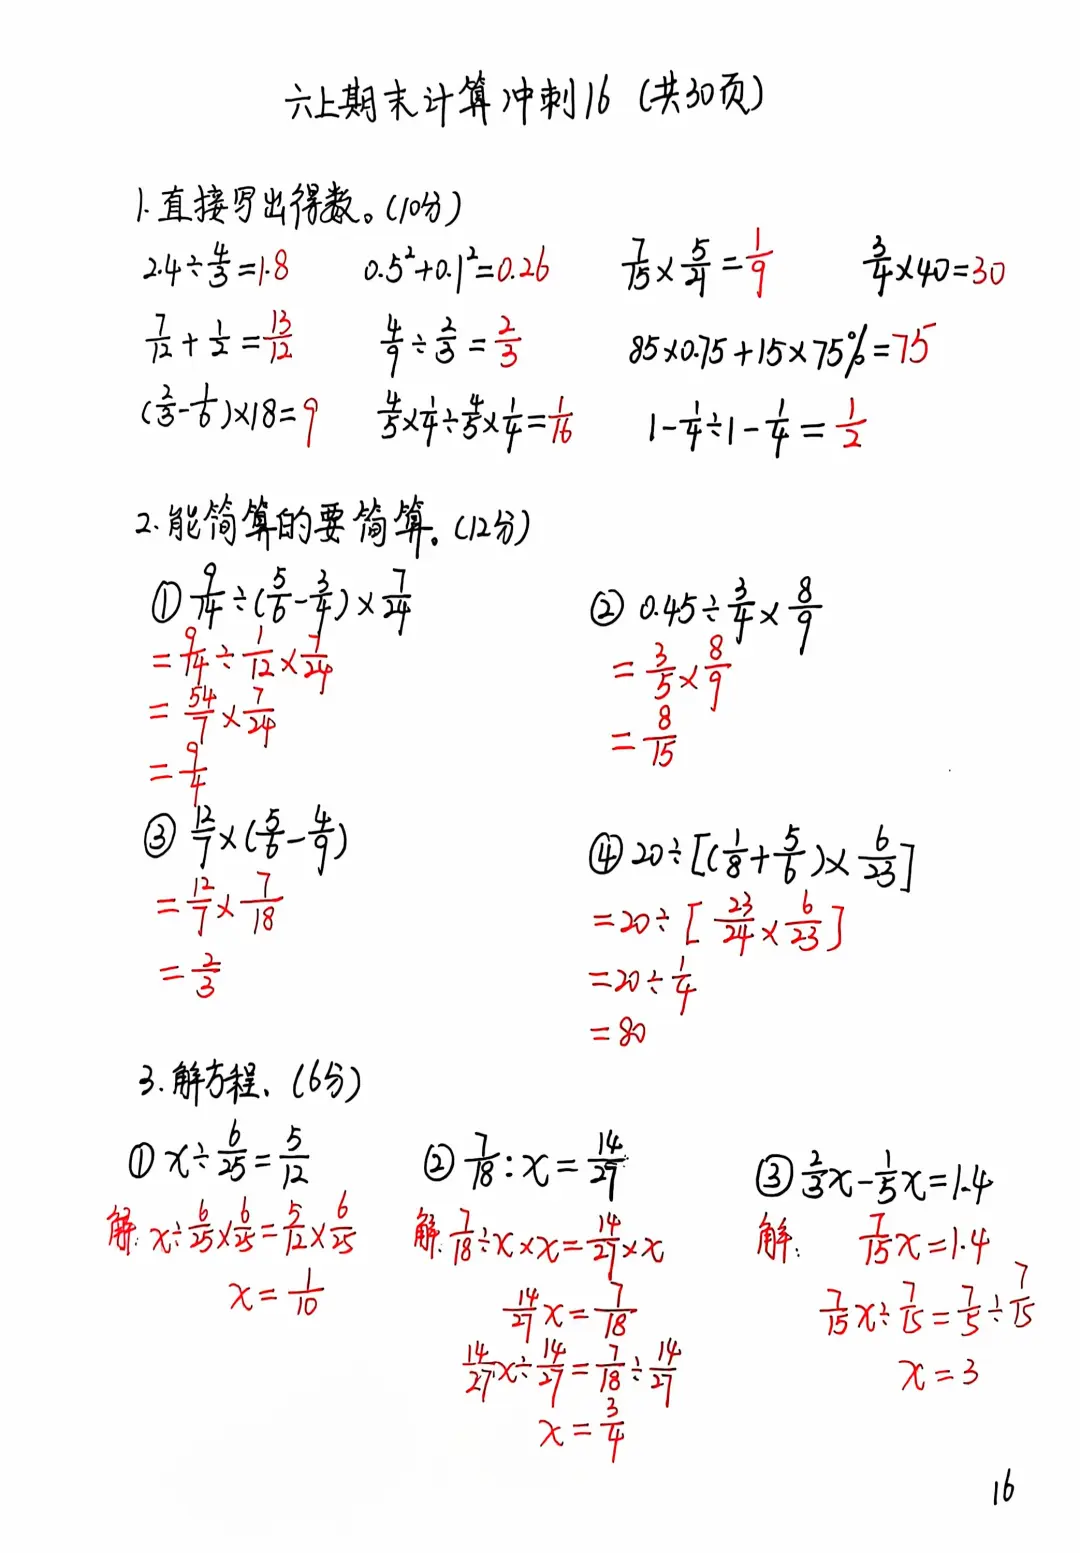 六上期末计算冲刺16 (共30页)
1.直接写出得数。(10分)
2.4÷4/3=1.8 0.5²+0.1²=0.26 7/15×5/21=1/9 3/4×40=30
7/12+1/2=13/12 4/9÷2/3=2/3 85×0.75+15×75%=75
(2/3-1/6)×18=9 4/5×1/4÷4/5×1/4=1/16 1-1/4÷1-1/4=1/2
2.能简算的要简算。(12分)
① 9/14÷(5/6-3/4)×7/24
=9/14÷1/12×7/24
=54/7×7/24
=9/4
② 0.45÷3/4×8/9
=3/5×8/9
=8/15
③ 12/7×(5/6-4/9)
=12/7×7/18
=2/3
④ 20÷[(1/8+5/6)×6/23]
=20÷[23/24×6/23]
=20÷1/4
=80
3.解方程、(6分)
① x÷6/25=5/12
解: x÷6/25×6/25=5/12×6/25
x=1/10
② 7/18:x=14/27
解: 7/18÷x×x=14/27×x
14/27x=7/18
14/27x÷14/27=7/18÷14/27
x=3/4
③ 2/3x-1/5x=1.4
解: 7/15x=1.4
7/15x÷7/15=7/5÷7/15
x=3
16